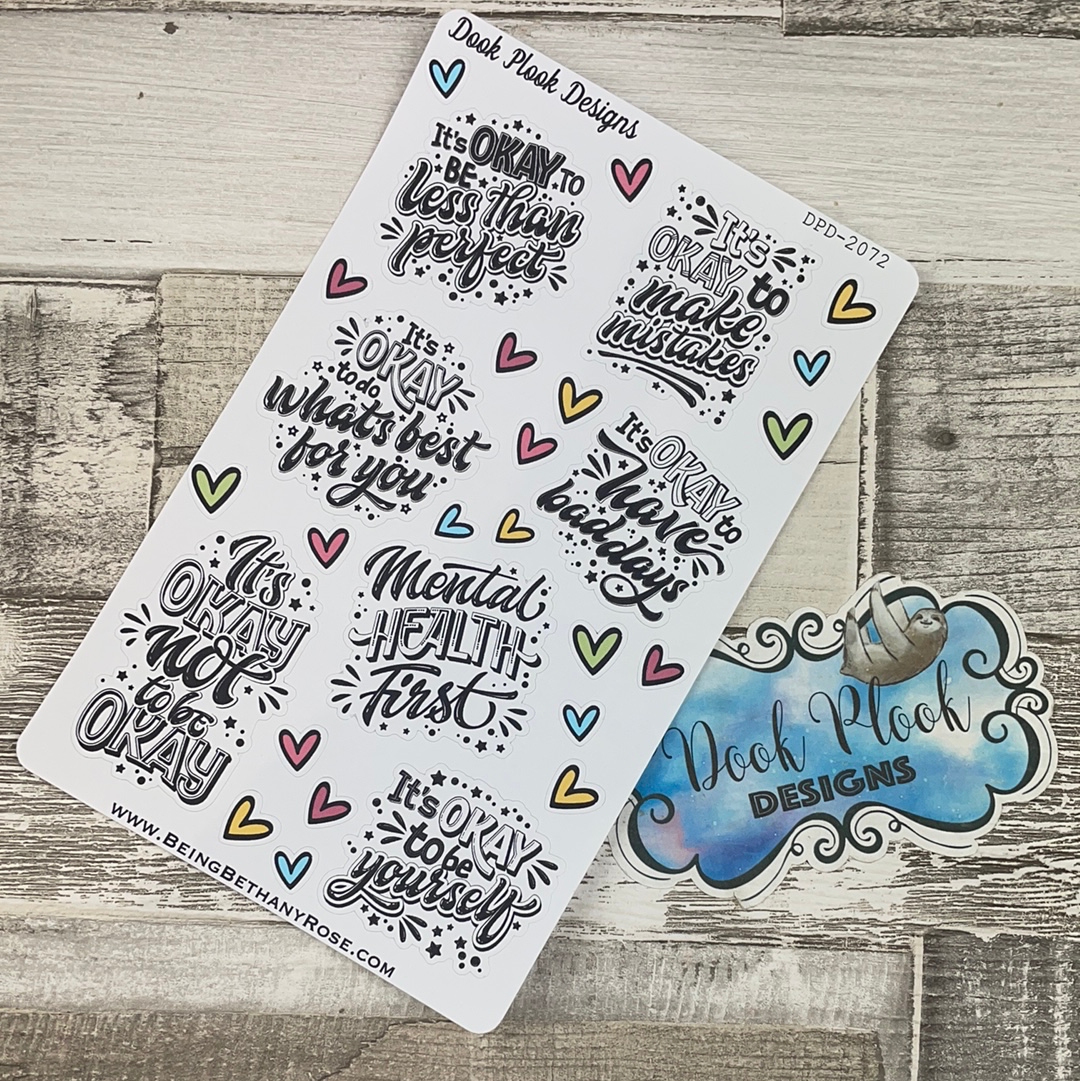 Dook Plook Designs
DPD-2072
It's OKAY TO
BE
less than
perfect
It's
OKAY to
make
mistakes
It's
OKAY
to do
what's best
for you
It's OKAY
to
have
bad days
It's
OKAY
not
to be
OKAY
Mental
HEALTH
First
It's OKAY
to be
yourself
www.BeingBethanyRose.com
Dook Plook
DESIGNS